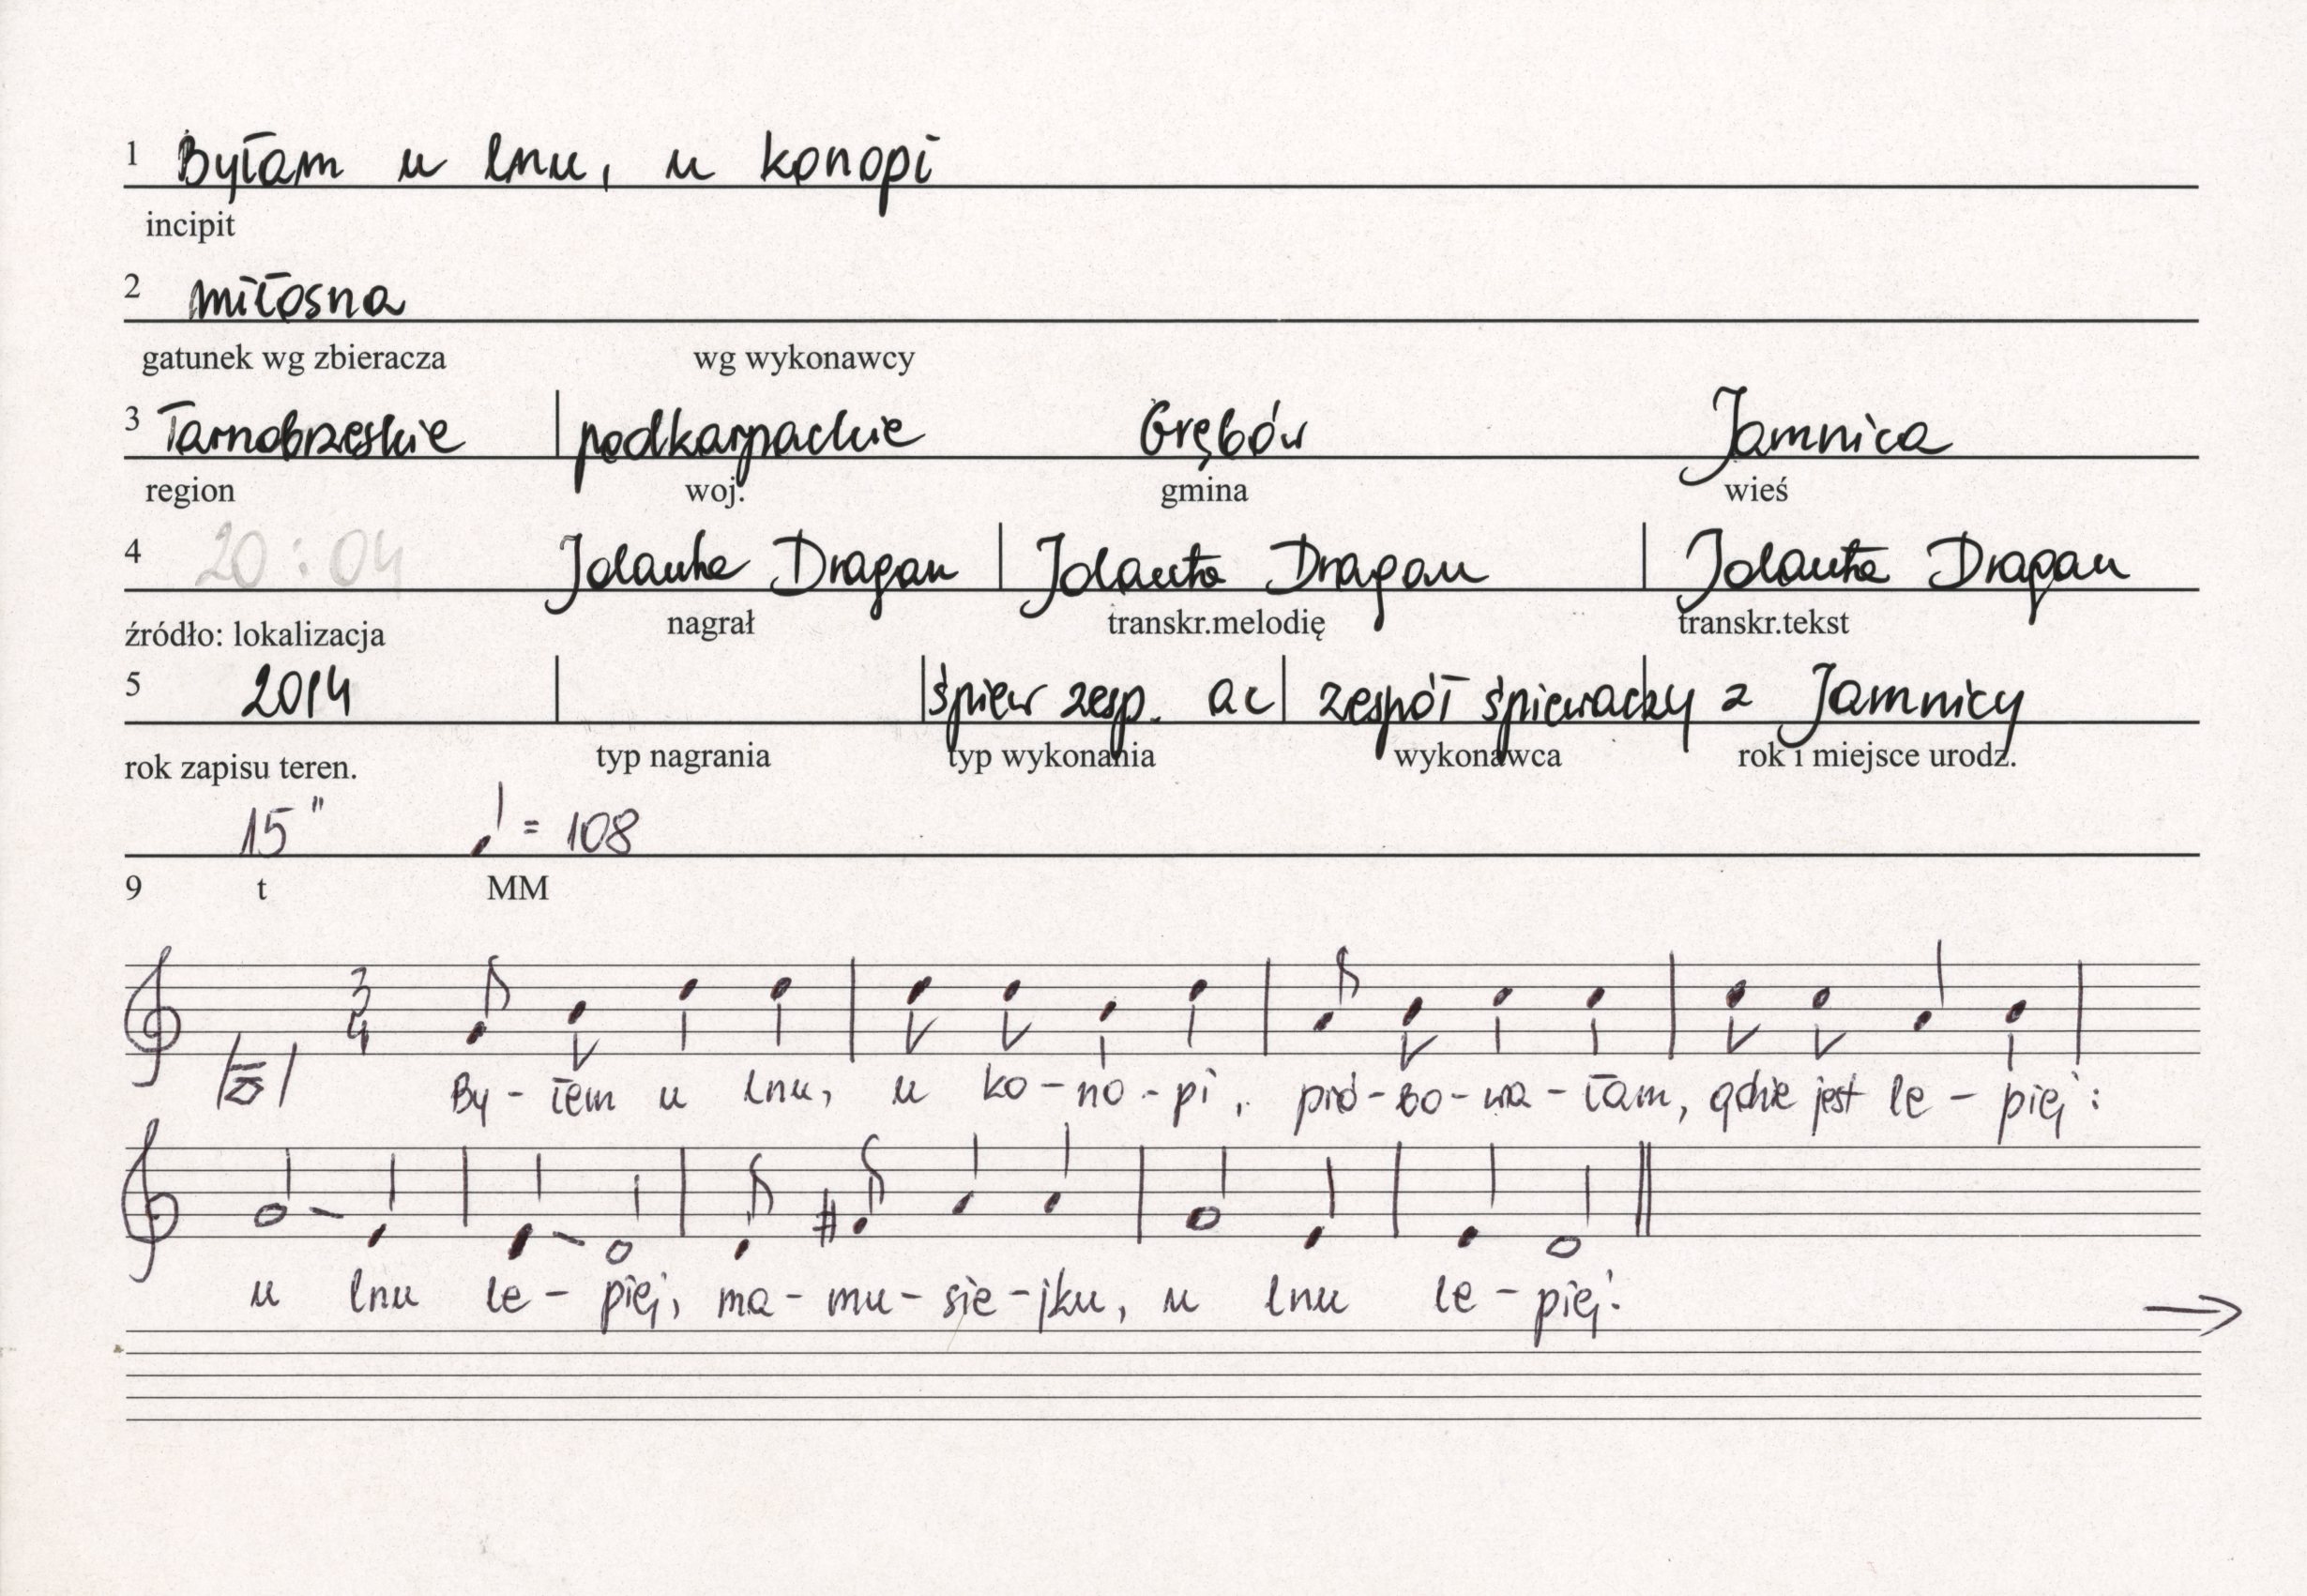 1 Byłam u lnu, u konopi
incipit
2 miłosna
gatunek wg zbieracza wg wykonawcy
3 Tarnobrzeskie podkarpackie Grębów Jamnica
region woj. gmina wieś
4 20:04 Jolanta Dragan Jolanta Dragan Jolanta Dragan
źródło: lokalizacja nagrał transkr.melodię transkr.tekst
5 2014 śpiew zesp. ac zespół śpiewaczy z Jamnicy
rok zapisu teren. typ nagrania typ wykonania wykonawca rok i miejsce urodz.
15" = 108
9 t MM
3
4
By-łem u lnu, u ko-no-pi, pró-bo-wa-łam, gdzie jest le-piej:
u lnu le-piej, ma-mu-sie-jku, u lnu le-piej.